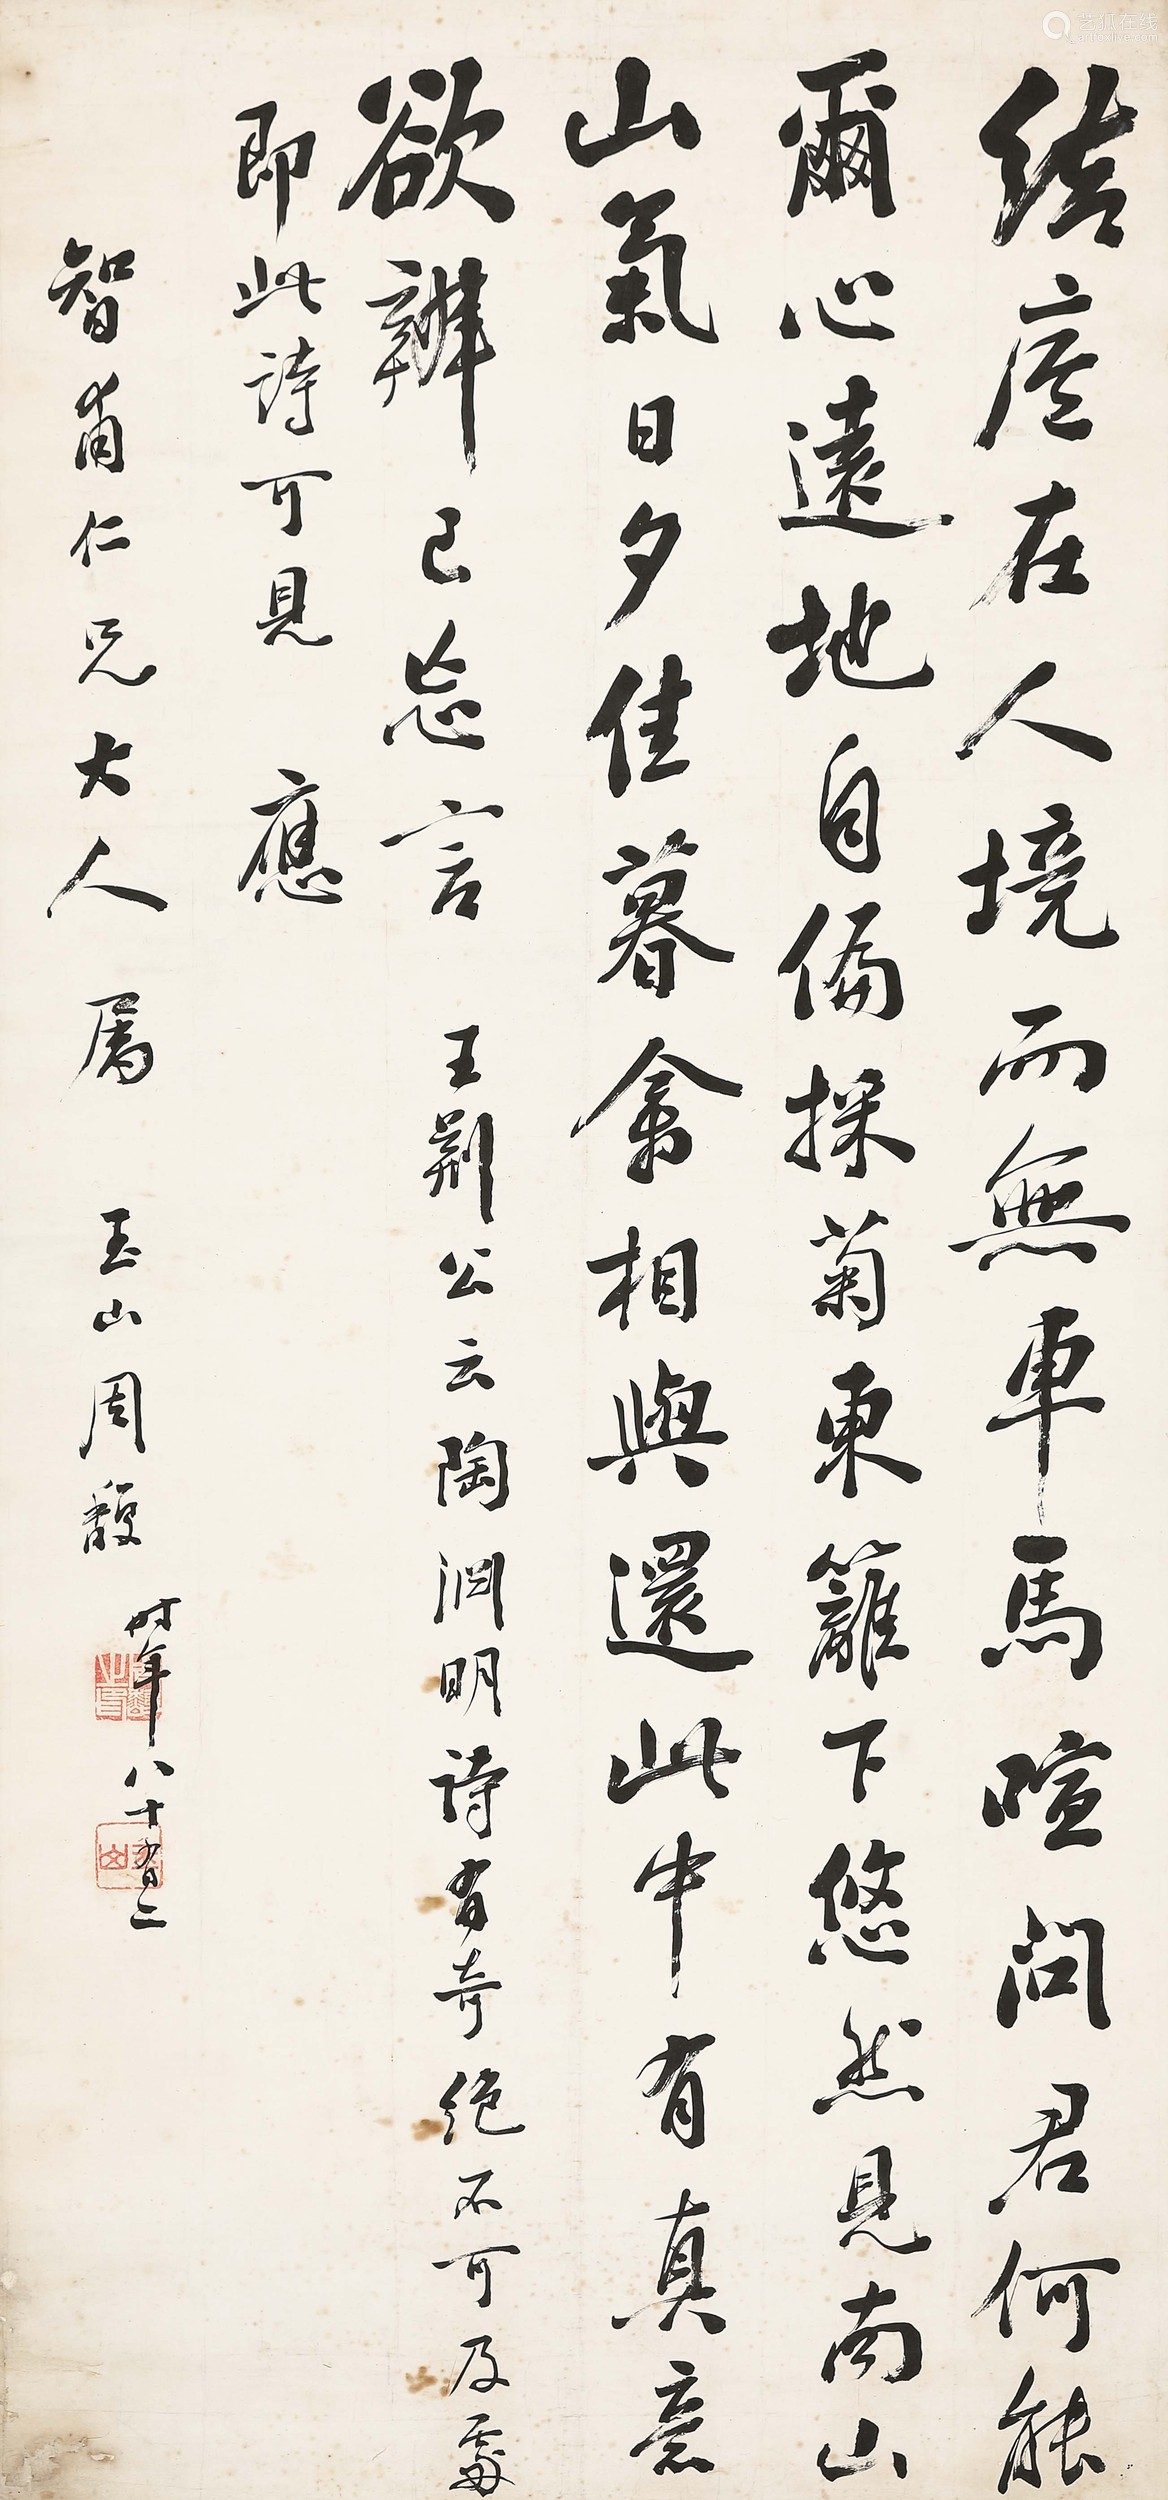 结庐在人境而無車馬喧問君何能
爾心遠地自偏採菊東籬下悠然見南山
山氣日夕佳暮禽相與還此中有真意
欲辨已忘言 王荆公云陶渊明诗有奇绝不可及處
即此诗可見 應
智甫仁兄大人 属 玉山周馥 时年八十有二
艺狐在线
artfoxlive.com